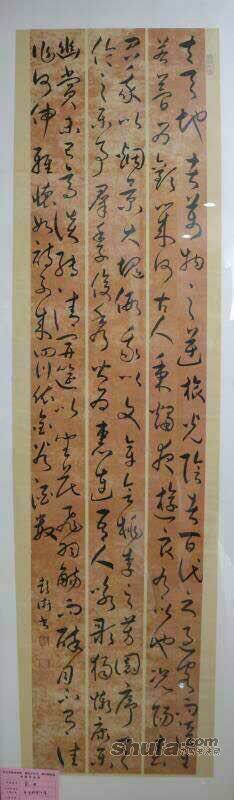 夫天地者萬物之逆旅光陰者百代之過客而浮生
若夢為歡幾何古人秉燭夜遊良有以也況陽春
召我以煙景大塊假我以文章會桃李之芳園序天
倫之樂事羣季俊秀皆為惠連吾人詠歌獨慚康樂
幽賞未已高談轉清開筵以坐花飛羽觴而醉月不有佳
作何伸雅懷如詩不成罰依金谷酒數
shufa.com